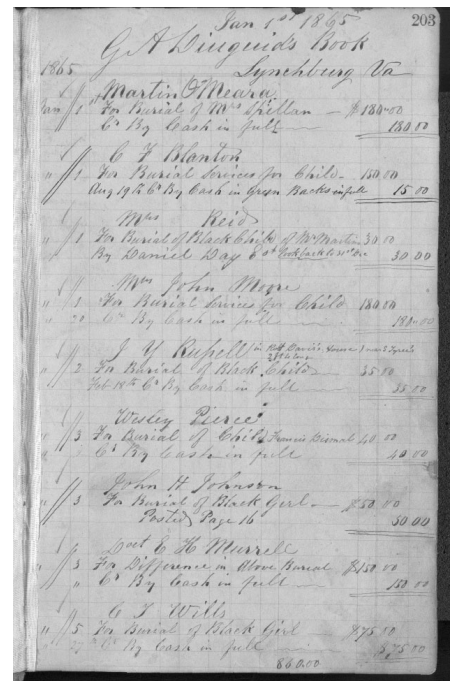 203
Jan 1st 1865
G A Diuguid's Book
1865 Lynchburg Va
Martin O'Meara
Jan 1 For Burial of Mrs Spillan — $180.00
Cr By Cash in full — 180 00
C F Blanton
" 1 For Burial Services for Child — 150 00
Aug 19th Cr By Cash in Green Backs in full 15.00
Mrs Reid
" 1 For Burial of Black Child of Mr Martin 30 00
By Daniel Day 30 00
Mrs John Moore
" 1 For Burial Services for Child 180 00
" Cr By Cash in full — 180.00
J Y Russell in House
" 2 For Burial of Black Child — 35 00
Feb 18th Cr By Cash in full — 35 00
Wesley Pierce
" 3 For Burial of Child Francis 40 00
Cr By Cash in full 40 00
John H Johnson
" 3 For Burial of Black Girl — $50 00
Posted Page 16 50 00
Doct E H Murrell
" 3 For Difference in Above Burial $150 00
" Cr By Cash in full — 150 00
C T Wills
" 5 For Burial of Black Girl — $75 00
Cr By Cash in full — $75 00
860.00